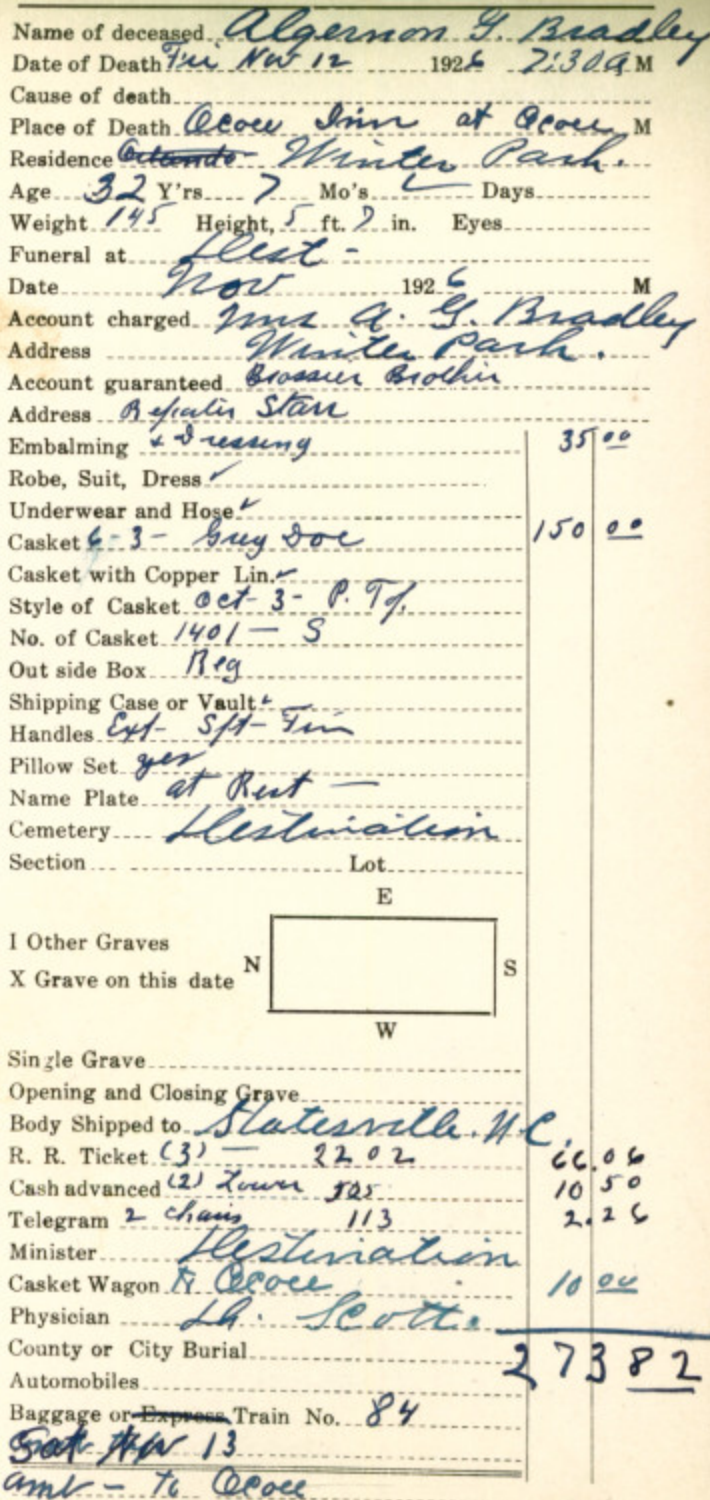 Name of deceased Algernon G. Bradley
Date of Death Fri Nov 12 1926 7:30 a M
Cause of death
Place of Death Ocoee Inn at Ocoee M
Residence Orlando Winter Park.
Age 32 Y'rs 7 Mo's Days
Weight 145 Height, 5 ft. 7 in. Eyes
Funeral at Dest -
Date Nov 1926 M
Account charged Mrs A. G. Bradley
Address Winter Park.
Account guaranteed Brossier Brothers
Address Reporter Star
Embalming & Dressing 35 00
Robe, Suit, Dress ✓
Underwear and Hose ✓
Casket 6-3- Grey Doe 150 00
Casket with Copper Lin. ✓
Style of Casket Oct-3- P. Tf.
No. of Casket 1401 - S
Out side Box Reg
Shipping Case or Vault ✓
Handles Ext-
Pillow Set yes
Name Plate at Rest -
Cemetery Destination
Section Lot
E
I Other Graves
X Grave on this date N S
W
Single Grave
Opening and Closing Grave
Body Shipped to Statesville. N.C.
R. R. Ticket (3) - 2202 66.06
Cash advanced (2) Lower 525 10 50
Telegram 2 chairs 113 2.26
Minister Destination
Casket Wagon to Ocoee 10 00
Physician Dr. Scott.
County or City Burial 273 82
Automobiles
Baggage or Express Train No. 84
Sat Nov 13
amb - to Ocoee